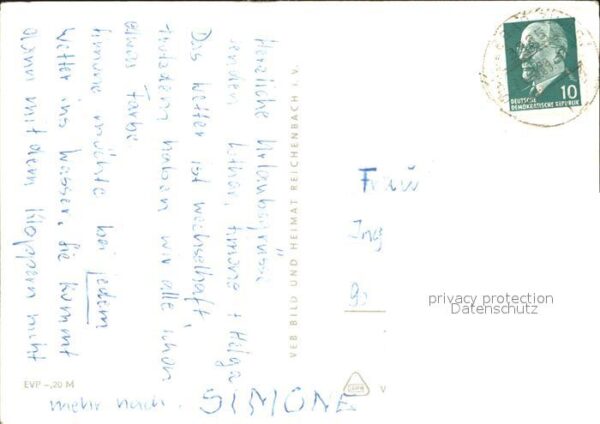 Herzliche Urlaubsgrüsse
senden Lothar, Simone + Helga
Das Wetter ist wechselhaft,
trotzdem haben wir alle schon
etwas Farbe.
Simone möchte bei jedem
Wetter ins Wasser, die kommt
dann mit dem klappern nicht
mehr nach. SIMONE
VEB BILD UND HEIMAT REICHENBACH i. V.
EVP -,20 M
V
DEUTSCHE
DEMOKRATISCHE REPUBLIK
10
Frau
Ing
privacy protection
Datenschutz